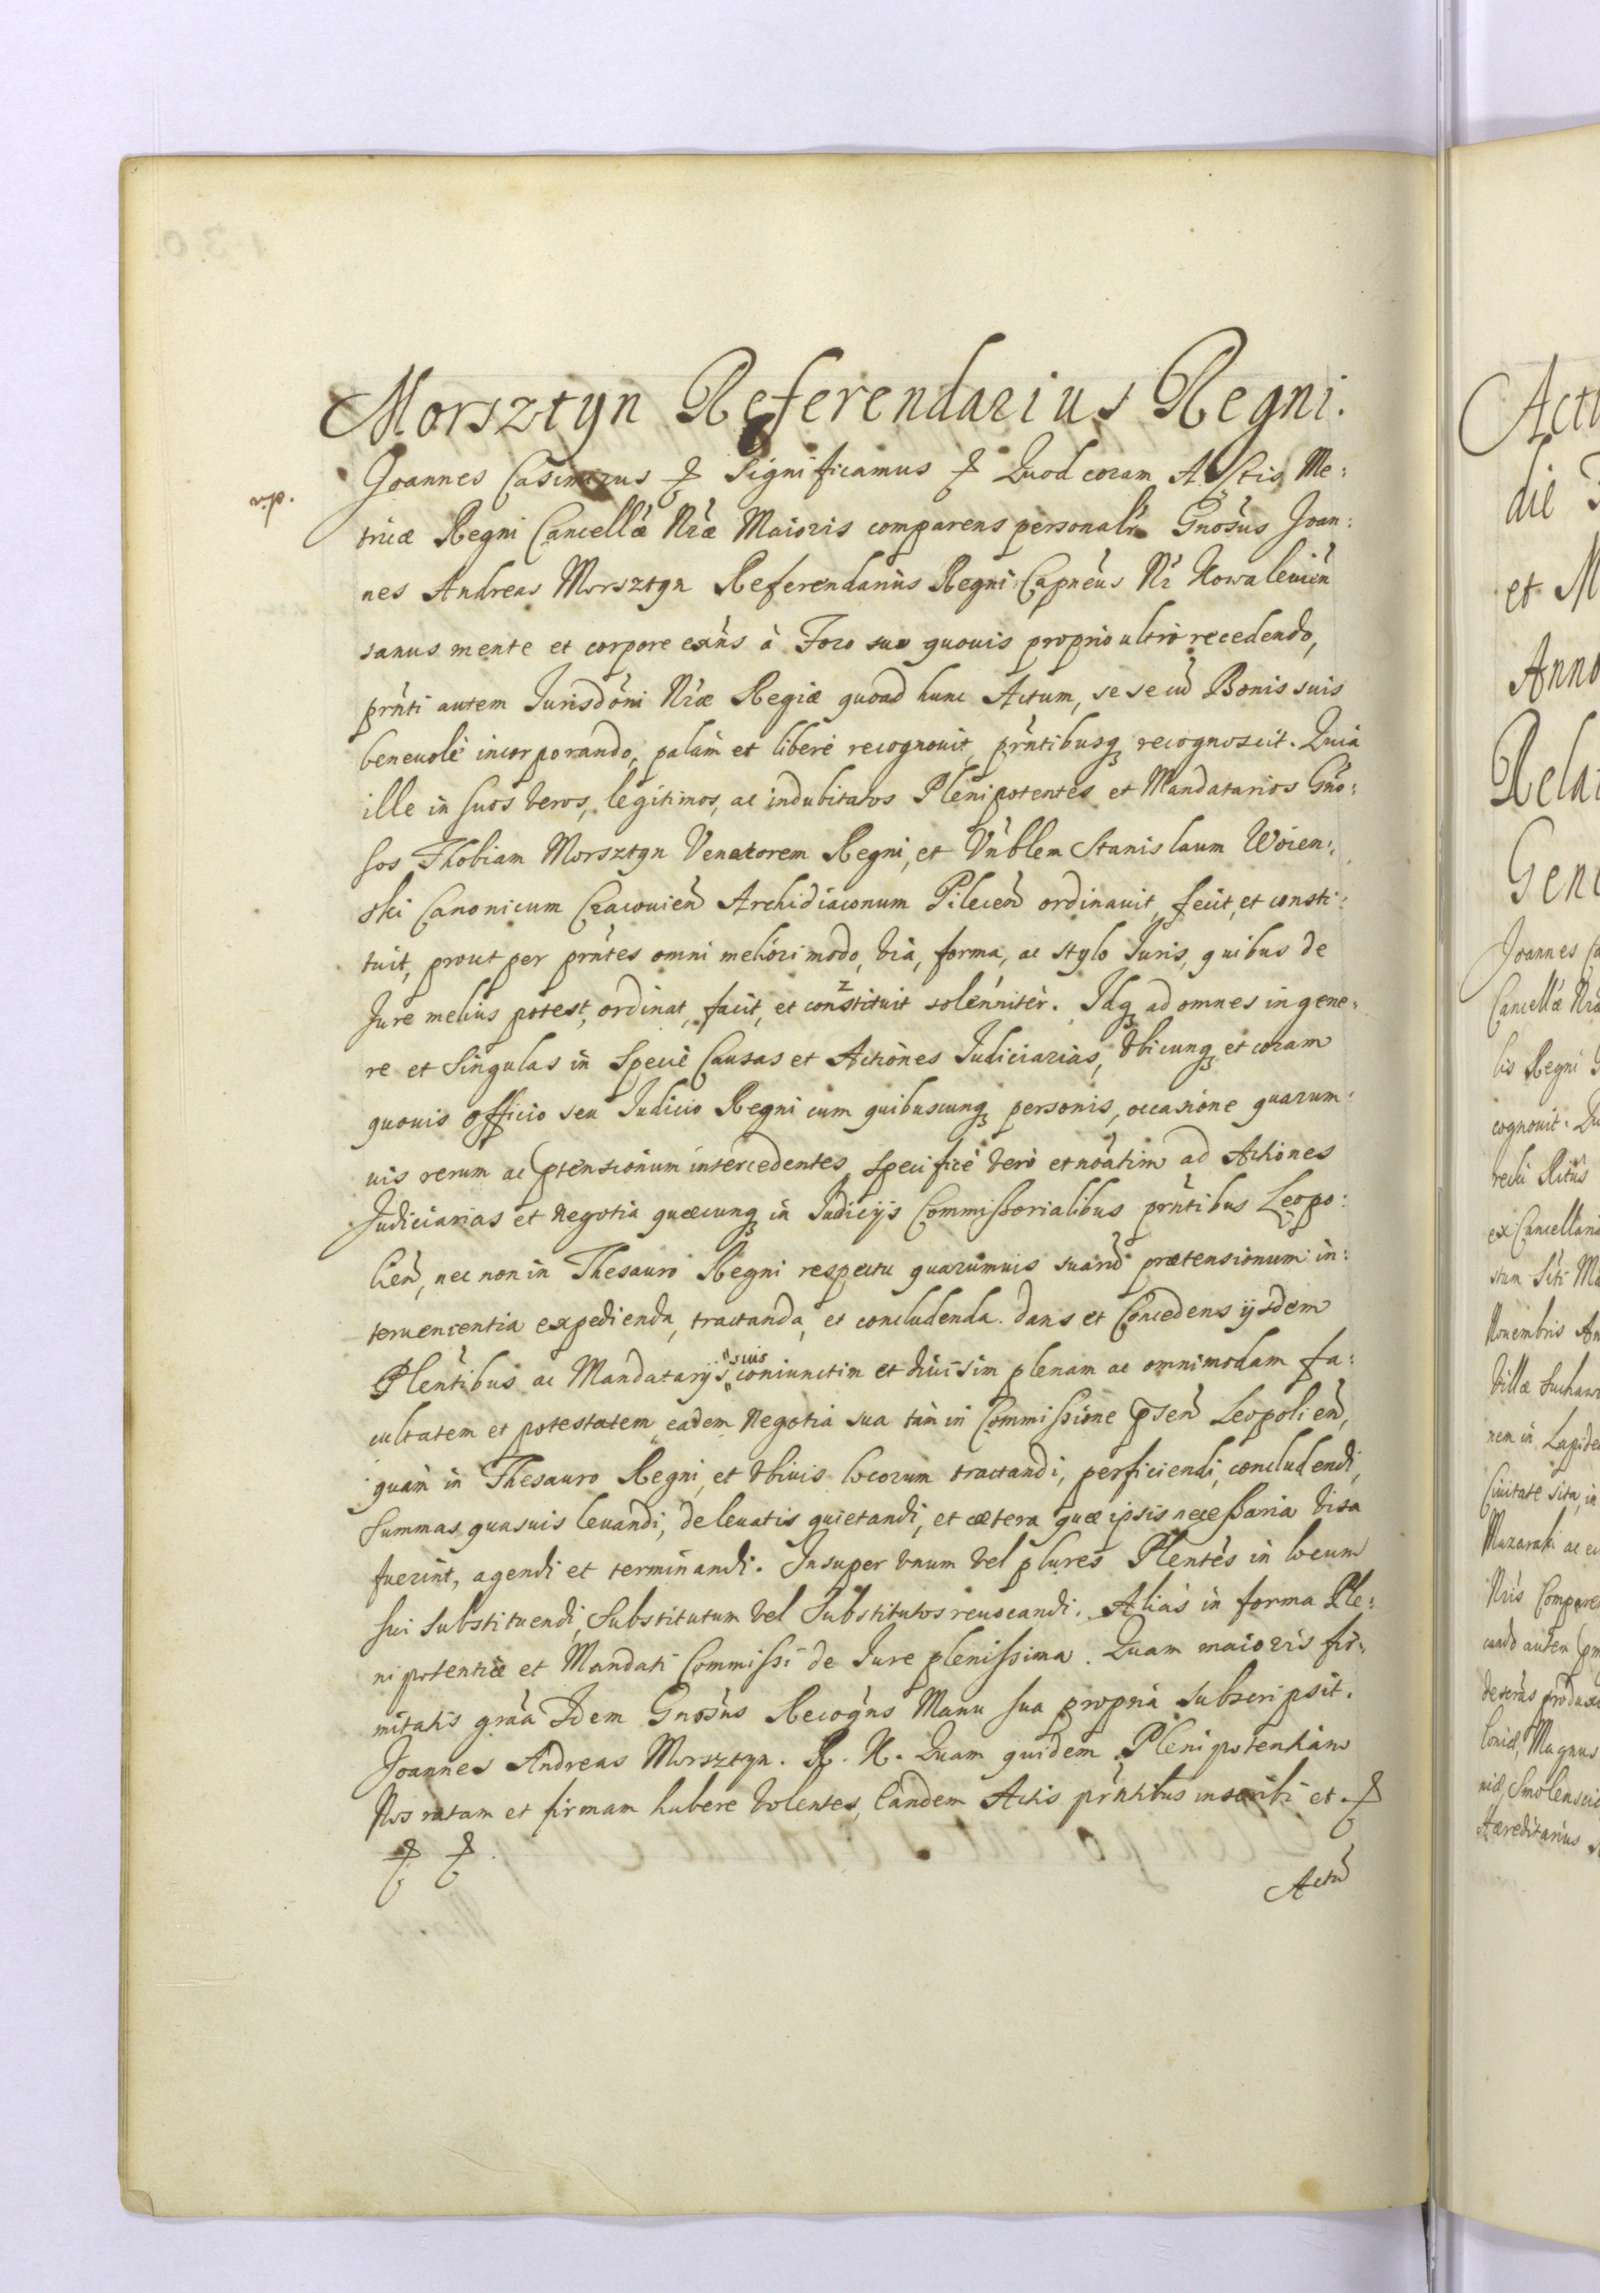 Morsztyn Referendarius Regni.
Joannes Casimirus Significamus Quod coram Actis Me:
tricæ Regni Cancellæ Nræ Maioris comparens personalr Gnosus Joan:
nes Andreas Morsztyn Referendarius Regni Capneus Nr Kowalevien
sanus mente et corpore exñs à Foro suo quouis proprio ultrò recedendo,
prñti autem Jurisdoni Nræ Regiæ quoad hunc Actum, se se cũ Bonis suis
beneuolè incorporando, palàm et liberè recognouit, prñtibusq recognoscit. Quia
ille in suos veros, legitimos, ac indubitatos Plenipotentes et Mandatarios Gño:
sos Thobiam Morsztyn Venatorem Regni, et Vñblem Stanislaum Woien:
ski Canonicum Cracouien Archidiaconum Pilecen ordinauit, fecit, et consti:
tuit, prout per prñtes omni meliori modo, via, forma, ac stylo Juris, quibus de
Jure melius potest, ordinat, facit, et constituit solenniter. Idq ad omnes in gene:
re et Singulas in Specie Causas et Actiones Judiciarias, vbicunq et coram
quouis officio seu Judicio Regni cum quibuscunq personis, occasione quarum:
uis rerum ac ptensionum intercedentes, specificè verò et noãtim ad Actiones
Judiciarias et negotia quæcunq in Judicijs Commissorialibus prñtibus Leopo:
lien, nec non in Thesauro Regni respectu quarumuis suarũ prætensionum in:
teruenientia expedienda, tractanda, et concludenda. dans et Concedens ijsdem
Plentibus ac Mandatarijs suis coniunctim et diuisim plenam ac omnimodam fa:
cultatem et potestatem, eadem Negotia sua tàm in Commissione psen Leopolien,
quàm in Thesauro Regni, et vbiuis locorum tractandi, perficiendi, concludendi,
Summas quasuis leuandi, de leuatis quietandi, et cætera quæ ipsis necessaria visa
fuerint, agendi et terminandi. Insuper vnum vel plures Plentes in locum
sui substituendi, Substitutum vel Substitutos reuocandi. Aliàs in forma Ple:
nipotentiæ et Mandati Commissi de Jure plenissima. Quam maioris fir:
mitatis grãa Idem Gnosus Recogns Manu sua propria subscripsit.
Joannes Andreas Morsztyn. R. K. Quam quidem Plenipotentiam
Nos ratam et firmam habere volentes, Eandem Actis prñtibus inscribi et
Actũ
Actu
die
et M
Anno
Relat
Gene
Joannes Ca
Cancellæ Nræ
lis Regni
cognouit. Qu
recti Ritus
ex Cancellaria
stum Siti Ma
Nouembris An
Villæ Suchaw
nem in Lapide
Ciuitate sita, in
Mazaraki ac
Nris Compare
cando autem
Magnus
Smolensci
Hæreditarius